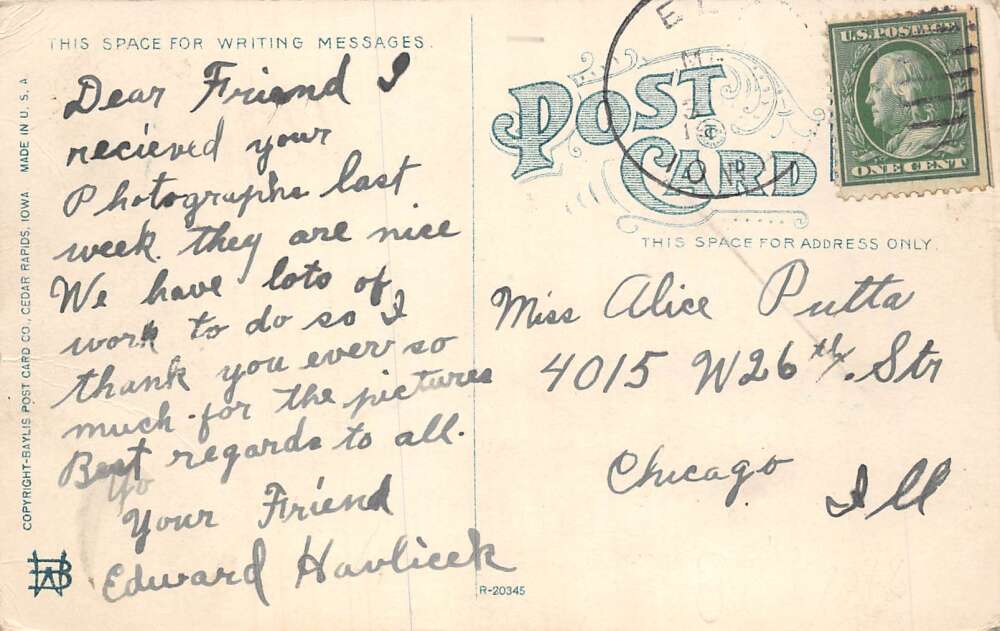 THIS SPACE FOR WRITING MESSAGES.
Dear Friend I
recieved your
Photographs last
week. they are nice
We have lots of
work to do so I
thank you ever so
much for the pictures
Best regards to all.
Yo
Your Friend
Edward Havlicek
COPYRIGHT-BAYLIS POST CARD CO., CEDAR RAPIDS, IOWA MADE IN U.S.A
POST CARD
U.S. POSTAGE
ONE CENT
THIS SPACE FOR ADDRESS ONLY.
Miss Alice Putta
4015 W 26th. Str
Chicago Ill
R-20345